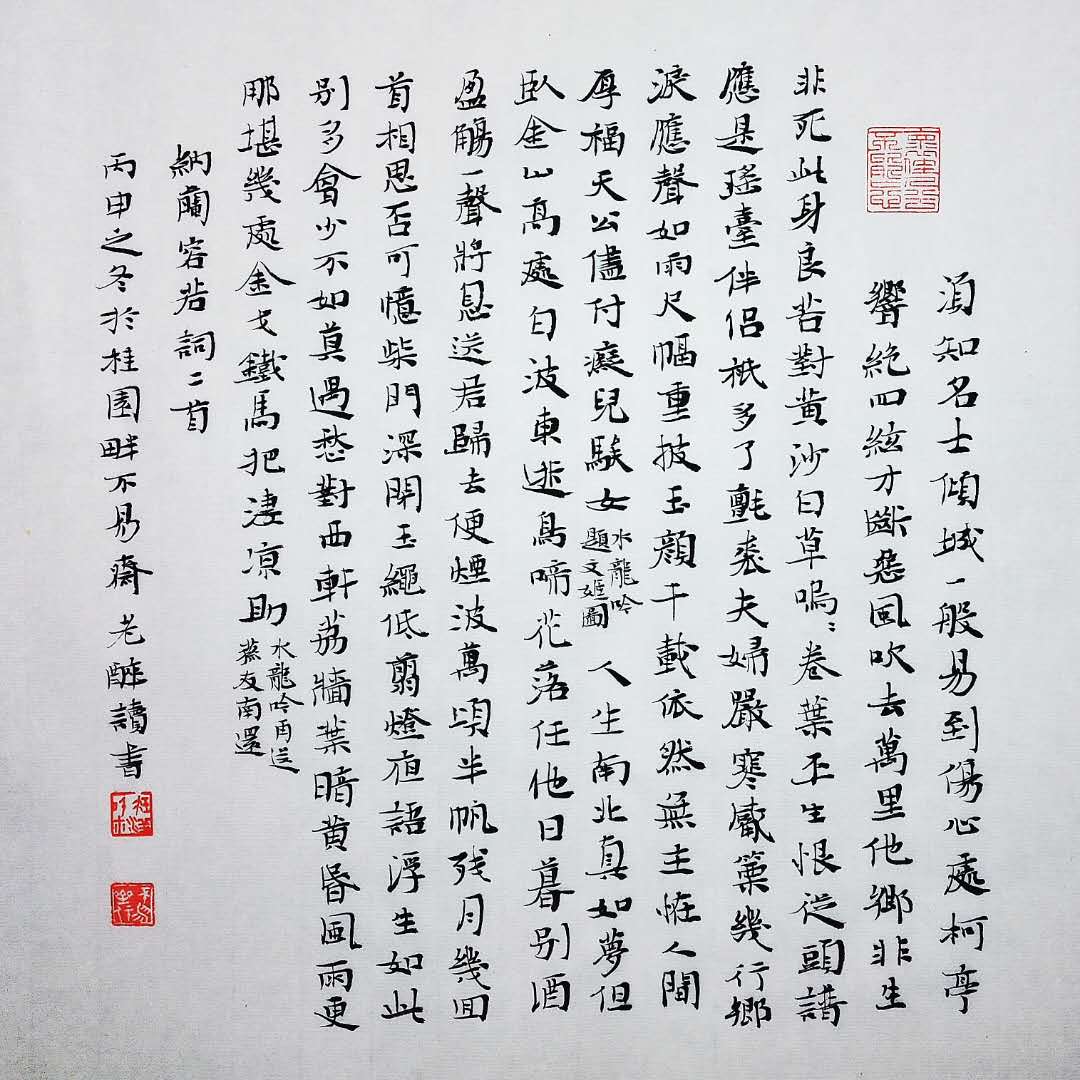 須知名士傾城一般易到傷心處柯亭
響絶四絃才斷惡風吹去萬里他鄉非生
非死此身良苦對黄沙白草嗚〻卷葉平生恨從頭譜
應是瑤臺伴侶祇多了氈裘夫婦嚴寒觱篥幾行鄉
淚應聲如雨尺幅重披玉顔千載依然無主恠人間
厚福天公儘付癡兒騃女
水龍吟
題文姬圖
人生南北真如夢但
臥金山高處白波東逝鳥啼花落任他日暮别酒
盈觴一聲將息送君歸去便煙波萬頃半帆残月幾回
首相思否可憶柴門深閉玉繩低翦燈夜語浮生如此
别多會少不如莫遇愁對西軒荔牆葉暗黄昏風雨更
那堪幾處金戈鐵馬把淒涼助
水龍吟再送
蓀友南還
納蘭容若詞二首
丙申之冬於桂園畔不易齋老醉讀書